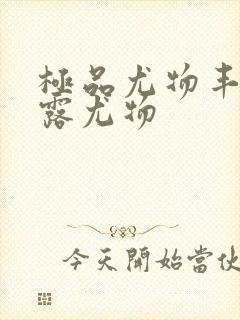 極品尤物丰
露尤物
今天開始當伙